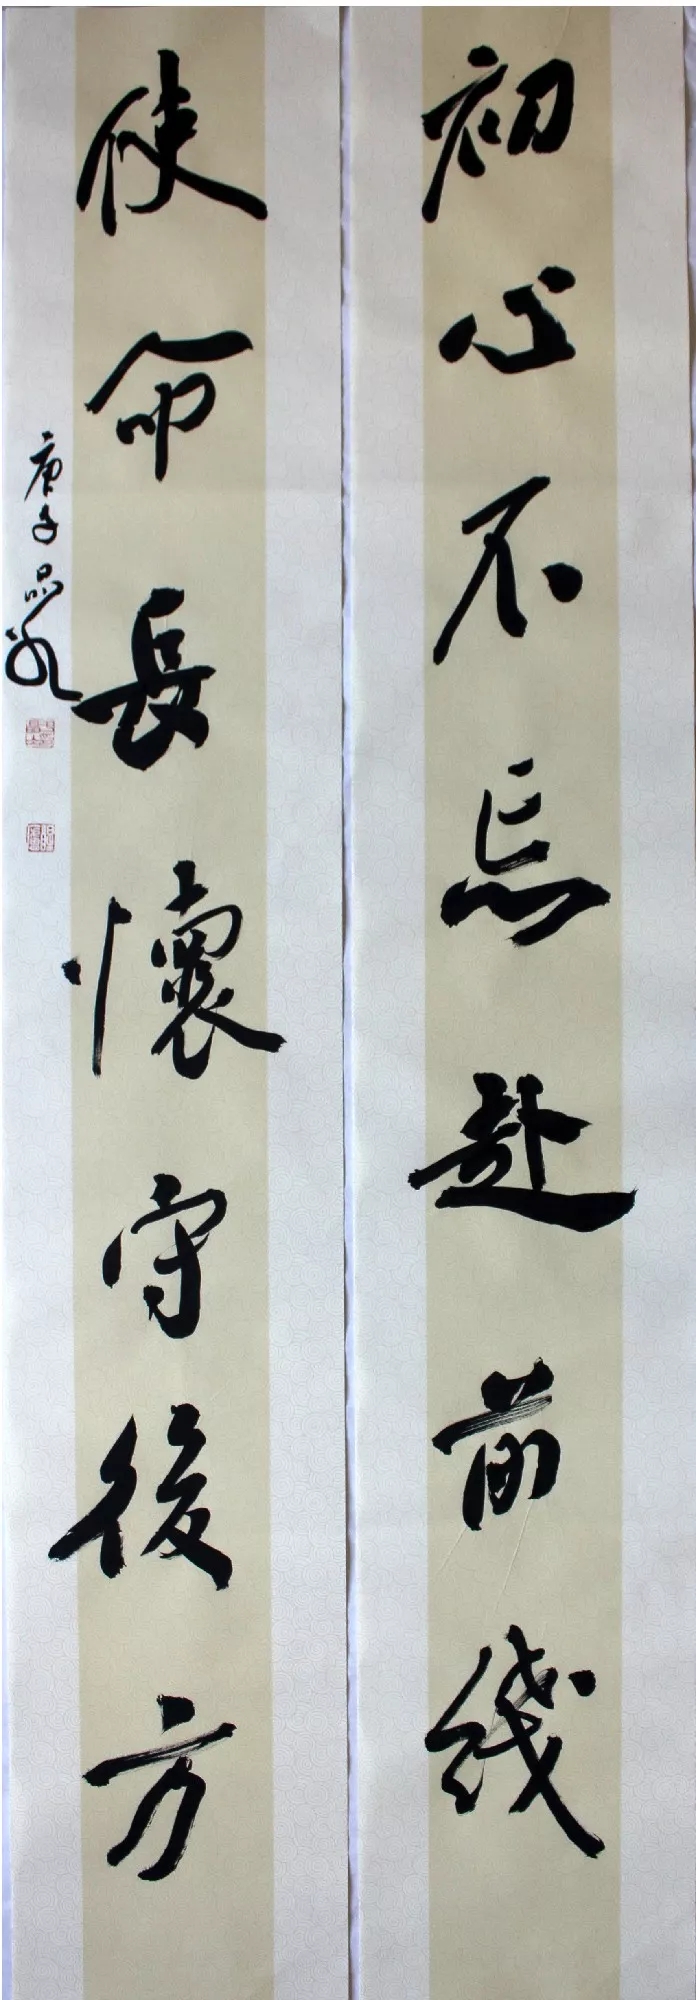 初心不忘赴前线
使命長懷守後方
庚子